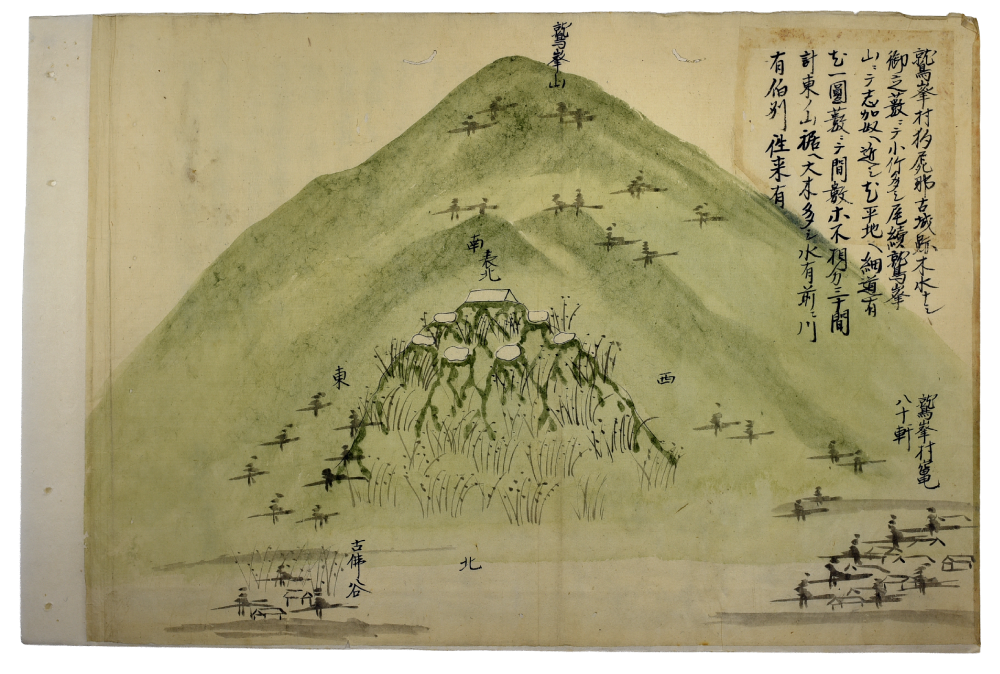 鷲峯村杤尾邪古城縣木水ナシ
御之薮ニテ小竹多シ尾續鷲峯
山ニテ志加奴ヘ近シ七平地ヘ細道有
七一圓薮ニテ間數木不相分三十間
計東ノ山裾ヘ大木多シ水有前ニ川
有伯别往来有
鷲峯山
南
表北
東
西
北
鷲峯村竃
八十軒
古佛谷